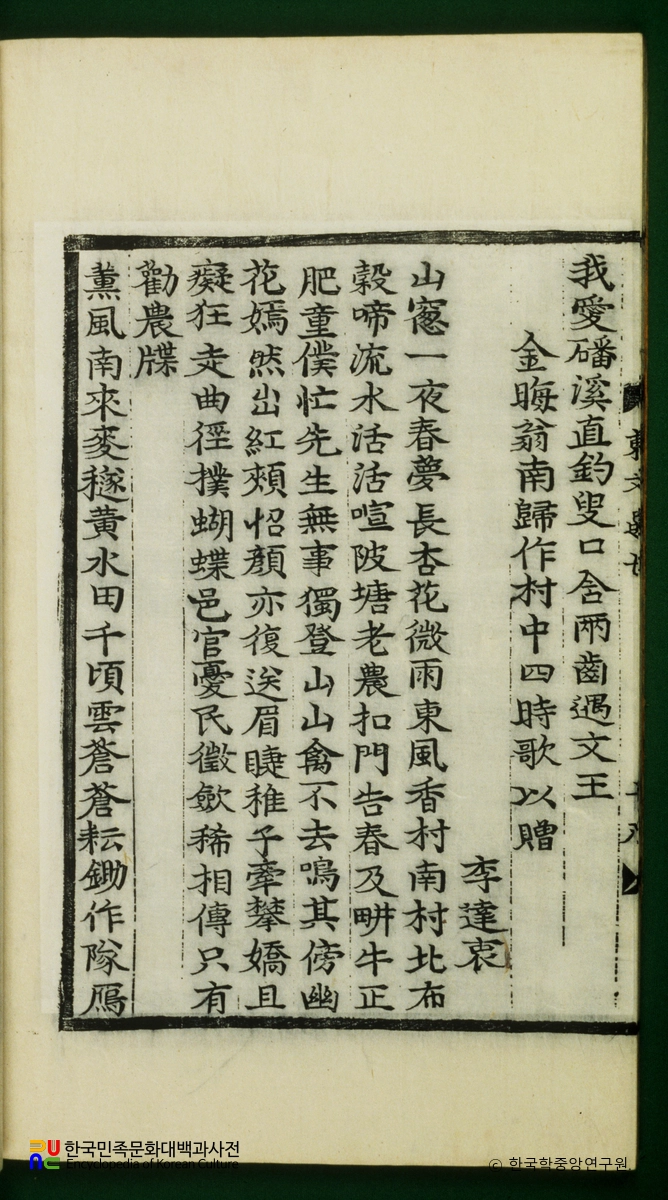 我愛磻溪直釣叟口含兩齒遇文王
金晦翁南歸作村中四時歌以贈
李達衷
山窓一夜春夢長杏花微雨東風香村南村北布
穀啼流水活活喧陂塘老農扣門告春及畊牛正
肥童僕忙先生無事獨登山山禽不去鳴其傍幽
花嫣然出紅頰怊顔亦復送眉睫稚子牽攀嬌且
癡狂走曲徑撲蝴蝶邑官憂民徵斂稀相傳只有
勸農牒
薰風南來麥穟黄水田千頃雲蒼蒼耘鋤作隊鴈
한국민족문화대백과사전
Encyclopedia of Korean Culture
© 한국학중앙연구원